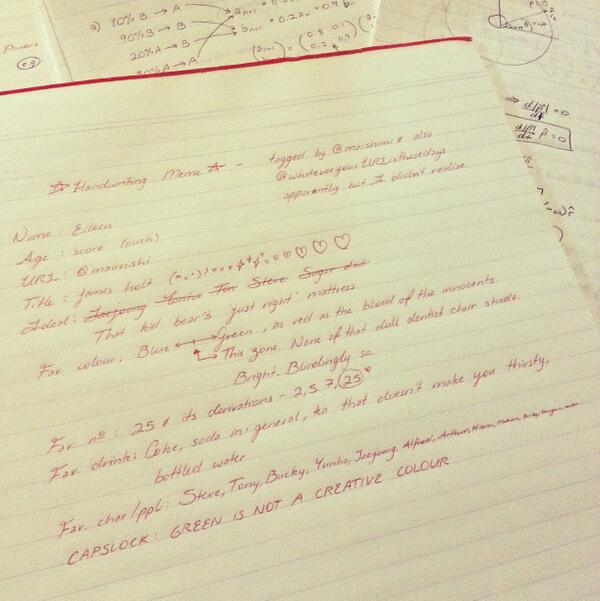 a) 10% B → A
90% B → B
20% A → B
80% A → A
aₙ₊₁
bₙ₊₁ = 0.2aₙ + 0.9bₙ
(aₙ₊₁ bₙ₊₁) = (0.8 0.1 0.2 0.9)
Powers
e.g
⇒ d|p̂|/dt = 0
☆ Handwriting Meme ☆ - tagged by @maishimi & also
@whateveryourURListhesedays
apparently but I didn't realise
Name : Eileen
Age : score (ouch)
URL : @maimishi
Title : james holt
Ideal : Jaejoong Yunho Tom Steve Sugar dad
That kid bear's 'just right' mattress.
Fav. colour : Blue ↔ Green, as red as the blood of the innocents.
This zone. None of that dull dentist chair shade.
Bright. Blindingly so.
Fav. nº : 25 & its derivations - 2, 5, 7, 25*
Fav. drink : Coke, soda in general, tea that doesn't make you thirsty,
bottled water
Fav. char/ppl : Steve, Tony, Bucky, Yunho, Jaejoong, Alfred, Arthur,
CAPSLOCK : GREEN IS NOT A CREATIVE COLOUR